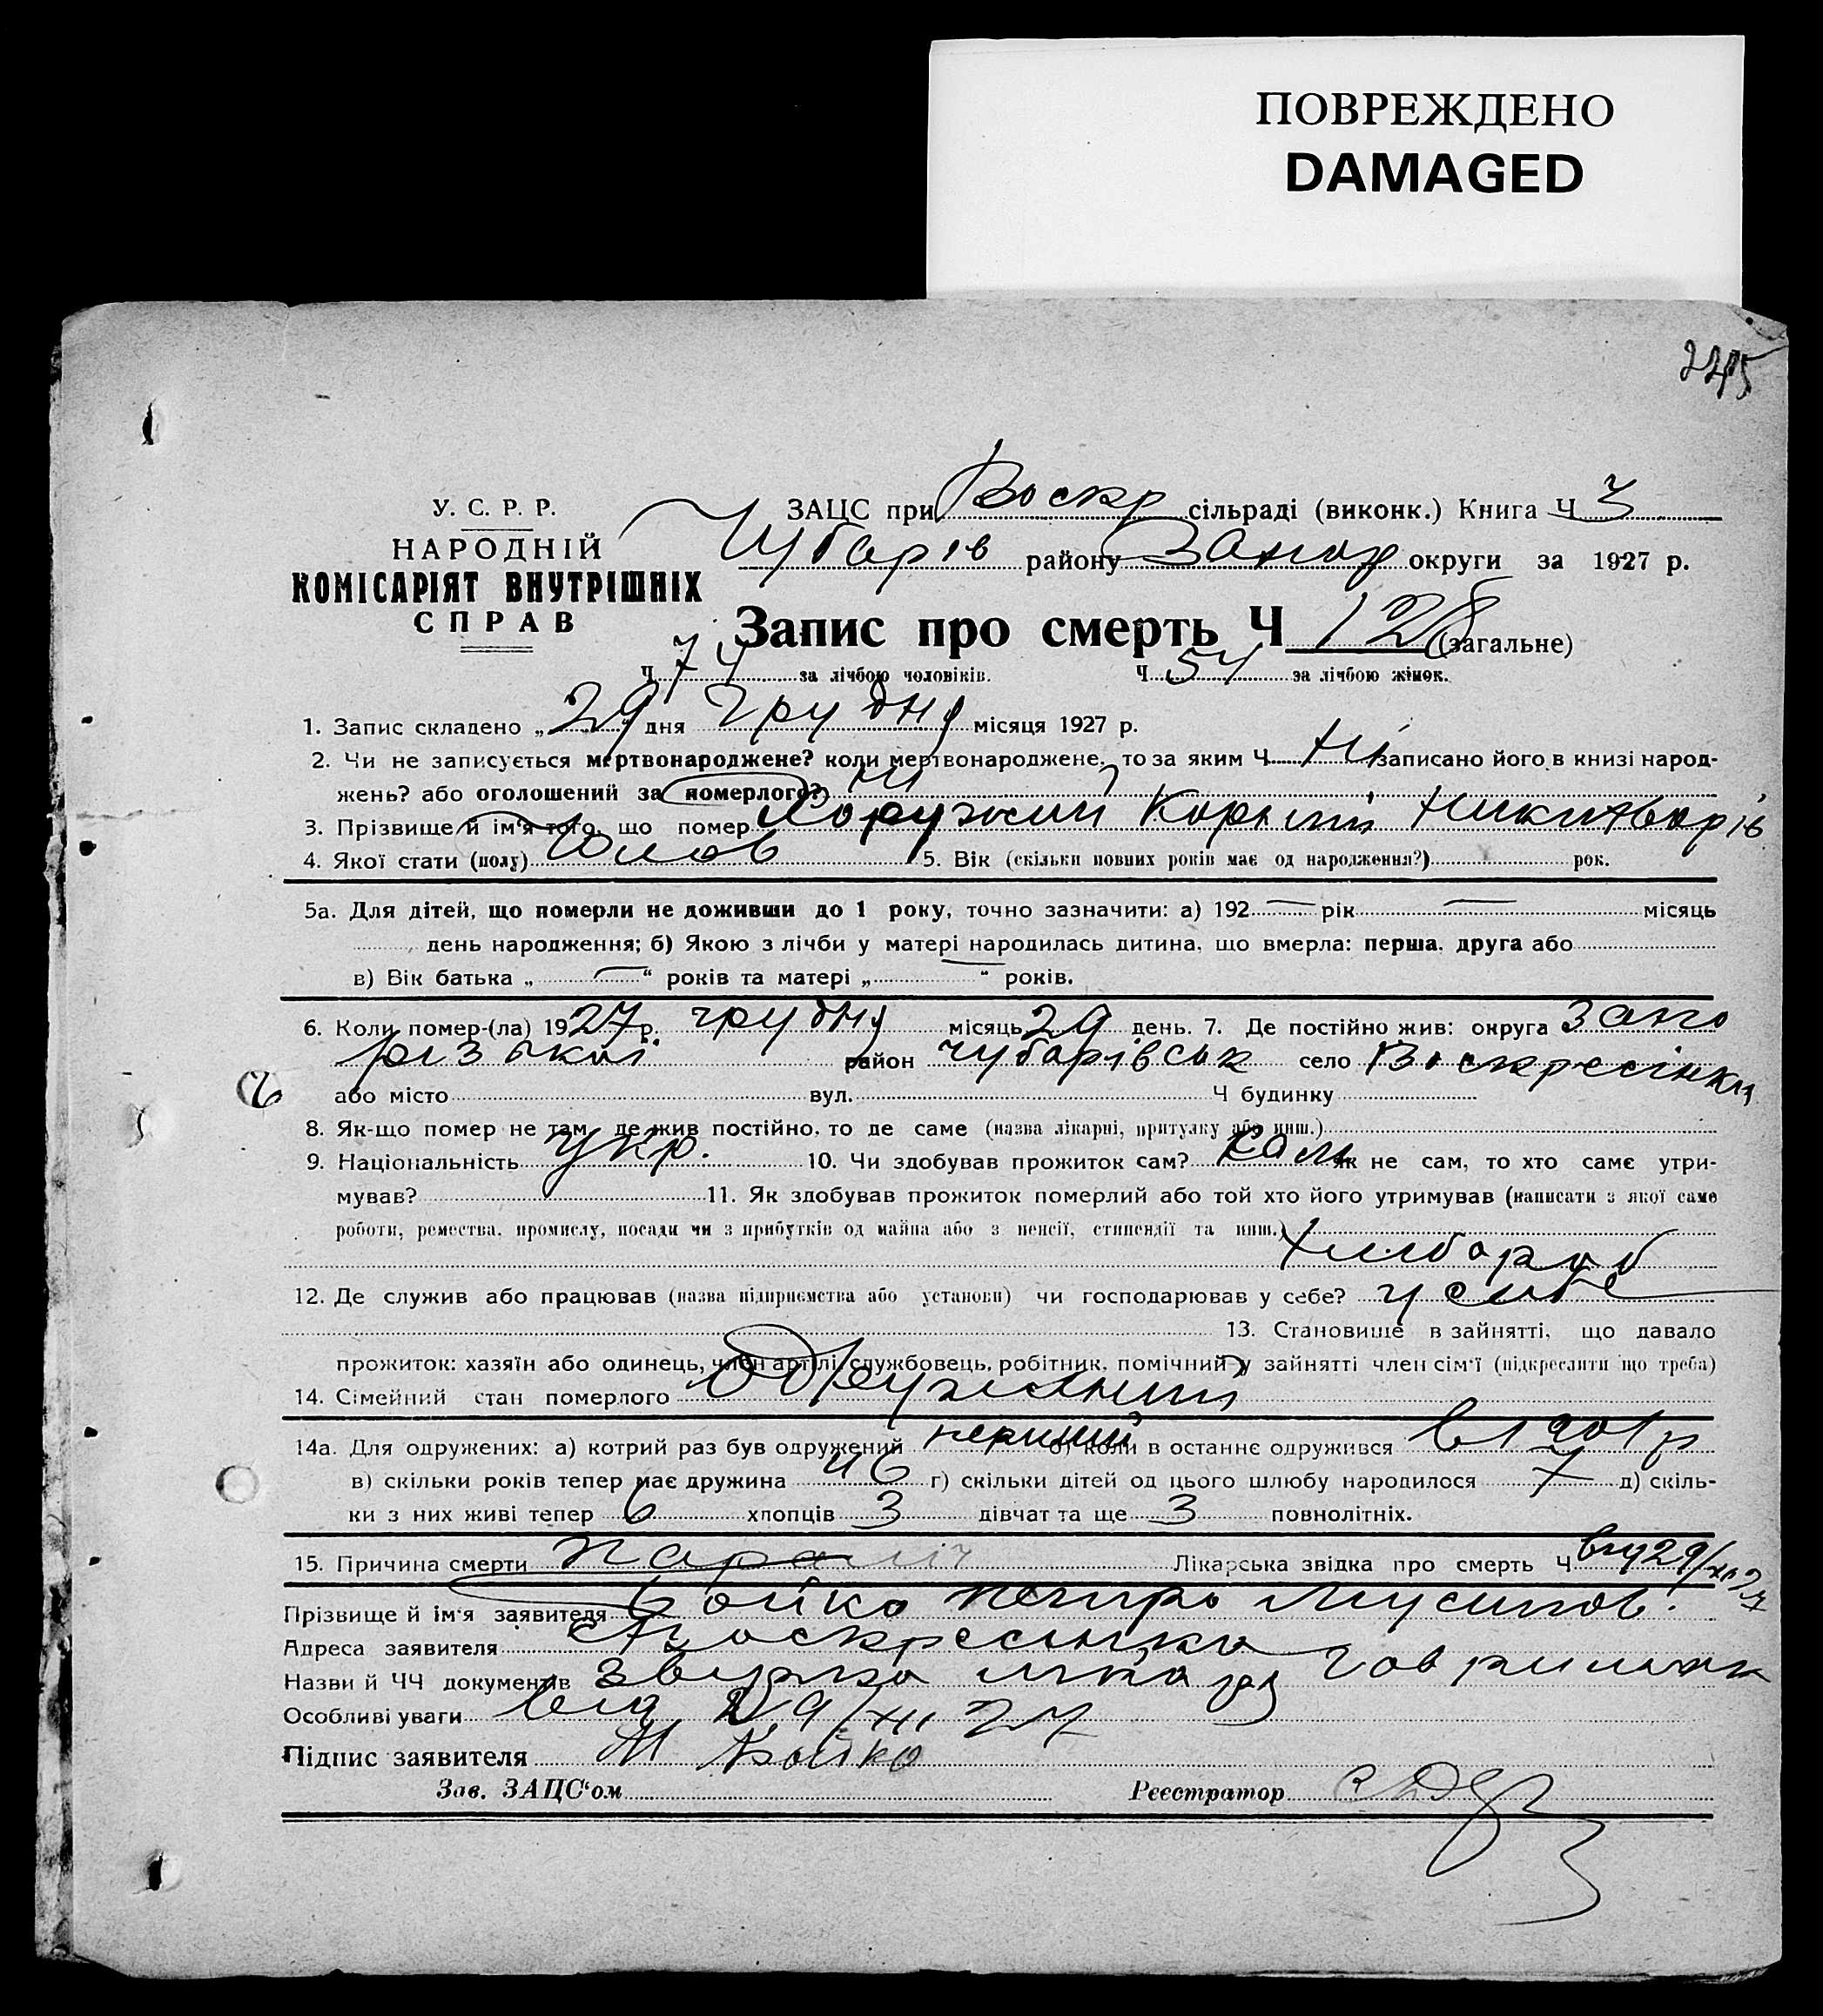 ПОВРЕЖДЕНО
DAMAGED
245
У. С. Р. Р.
НАРОДНІЙ
КОМІСАРІЯТ ВНУТРІШНІХ
СПРАВ
ЗАЦС при Воскр сільраді (виконк.) Книга Ч 3
Чубарів району Запор округи за 1927 р.
Запис про смерть Ч 128 (загальне)
Ч 74 за лічбою чоловіків. Ч 54 за лічбою жінок.
1. Запис складено „ 29 дня грудня місяця 1927 р.
2. Чи не записується мертвонароджене? коли мертвонароджене, то за яким Ч Ні записано його в книзі народ-
жень? або оголошений за померлого? ні
3. Прізвище й ім'я того, що помер Корній
4. Якої стати (полу) Чолов 5. Вік (скільки повних років має од народження?) рок.
5а. Для дітей, що померли не доживши до 1 року, точно зазначити: а) 192 — рік — місяць
день народження; б) Якою з лічби у матері народилась дитина, що вмерла: перша, друга або
в) Вік батька „ — “ років та матері „ — “ років.
6. Коли помер-(ла) 1927 р. грудня місяць 29 день. 7. Де постійно жив: округа Запо
різької район Чубарівськ село Воскресінки
або місто вул. Ч будинку
8. Як-що помер не там, де жив постійно, то де саме (назва лікарні, притулку або инш.)
9. Національність укр. 10. Чи здобував прожиток сам? сам як не сам, то хто саме утри-
мував? 11. Як здобував прожиток померлий або той хто його утримував (написати з якої саме
роботи, ремества, промислу, посади чи з прибутків од майна або з пенсії, стипендії та инш.)
хлібороб
12. Де служив або працював (назва підприємства або установи) чи господарював у себе? у себе
13. Становище в зайнятті, що давало
прожиток: хазяїн або одинець, член артілі, службовець, робітник, помічний у зайнятті член сім'ї (підкреслити що треба)
14. Сімейний стан померлого Одружений
14а. Для одружених: а) котрий раз був одружений перший б) коли в останнє одружився в 1901 р
в) скільки років тепер має дружина 46 г) скільки дітей од цього шлюбу народилося 7 д) скіль-
ки з них живі тепер 6 хлопців 3 дівчат та ще 3 повнолітніх.
15. Причина смерти Параліч Лікарська звідка про смерть Ч від 29/XII 27
Прізвище й ім'я заявителя Бойко Петро Мусійов.
Адреса заявителя с. Воскресінка
Назви й ЧЧ документів
Особливі уваги від 29/XII 27
Підпис заявителя Бойко
Зав. ЗАЦС'ом Реєстратор